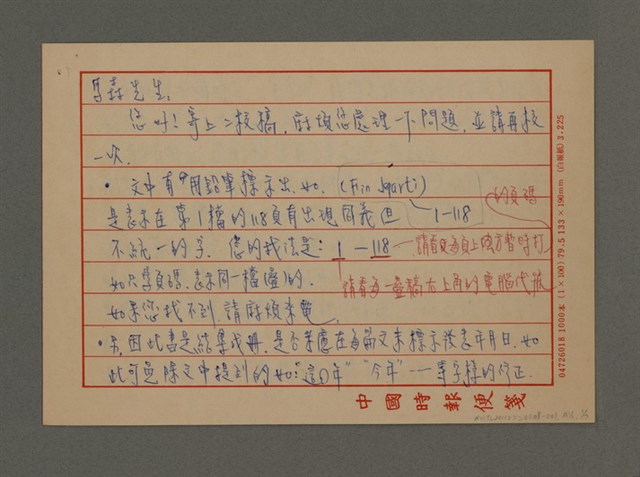 先生:
您好!寄上二校稿,麻煩您處理一下問題,並請再校
一次.
• 文中有用鉛筆標示出,如. (Fin
是表示在第1檔的118頁有出現同義但 1-118 的頁碼
不統一的字. 您的找法是: 1 — 118 — 請看
如只寫頁碼,表示同一檔 的. 請看每一疊稿右上角的電腦代號
如果您找不到,請麻煩來電.
• 另,因此書是結集成冊,是否考慮在每篇文末標示發表年月日,如
此可免除文中提到的如"這0年" "今年"……等字樣的修正.
中國時報便箋
04726018 1000本 (1×100) 79.5 133×190mm (白報紙) 3.225